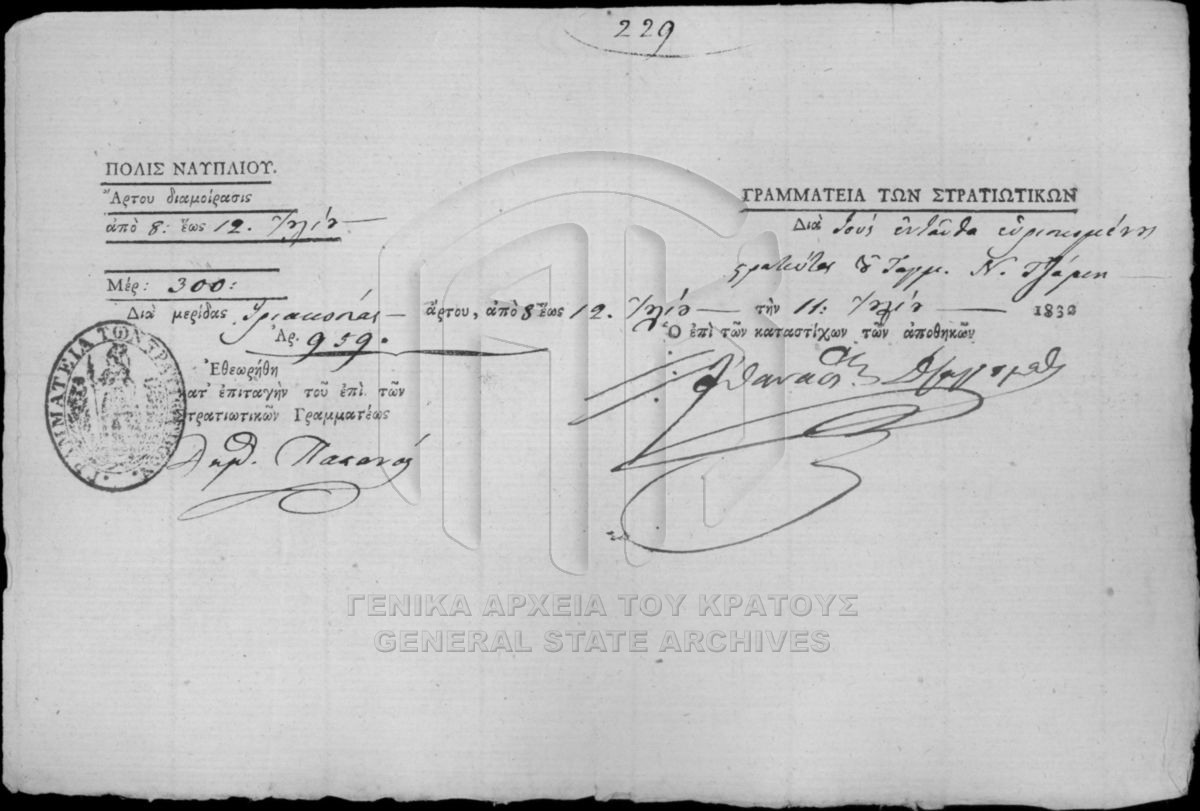 229
ΠΟΛΙΣ ΝΑΥΠΛΙΟΥ.
Ἄρτου διαμοίρασις
ἀπὸ 8: ἕως 12. Ἰουλίου
Μέρ: 300:
ΓΡΑΜΜΑΤΕΙΑ ΤΩΝ ΣΤΡΑΤΙΩΤΙΚΩΝ
Διὰ τοὺς ἐνταῦθα εὑρισκομένους
στρατιώτας τοῦ Ταγμ. Ν. Τζάμη
Διὰ μερίδας τριακοσίας ἄρτου, ἀπὸ 8 ἕως 12. Ἰουλίου τὴν 11: Ἰουλίου 1832
Ἀρ. 959.
Ὁ ἐπὶ τῶν καταστίχων τῶν ἀποθηκῶν
Ἐθεωρήθη
κατ' ἐπιταγὴν τοῦ ἐπὶ τῶν
Στρατιωτικῶν Γραμματέως
ΓΡΑΜΜΑΤΕΙΑ ΤΩΝ ΣΤΡΑΤΙΩΤΙΚΩΝ
ΓΕΝΙΚΑ ΑΡΧΕΙΑ ΤΟΥ ΚΡΑΤΟΥΣ
GENERAL STATE ARCHIVES